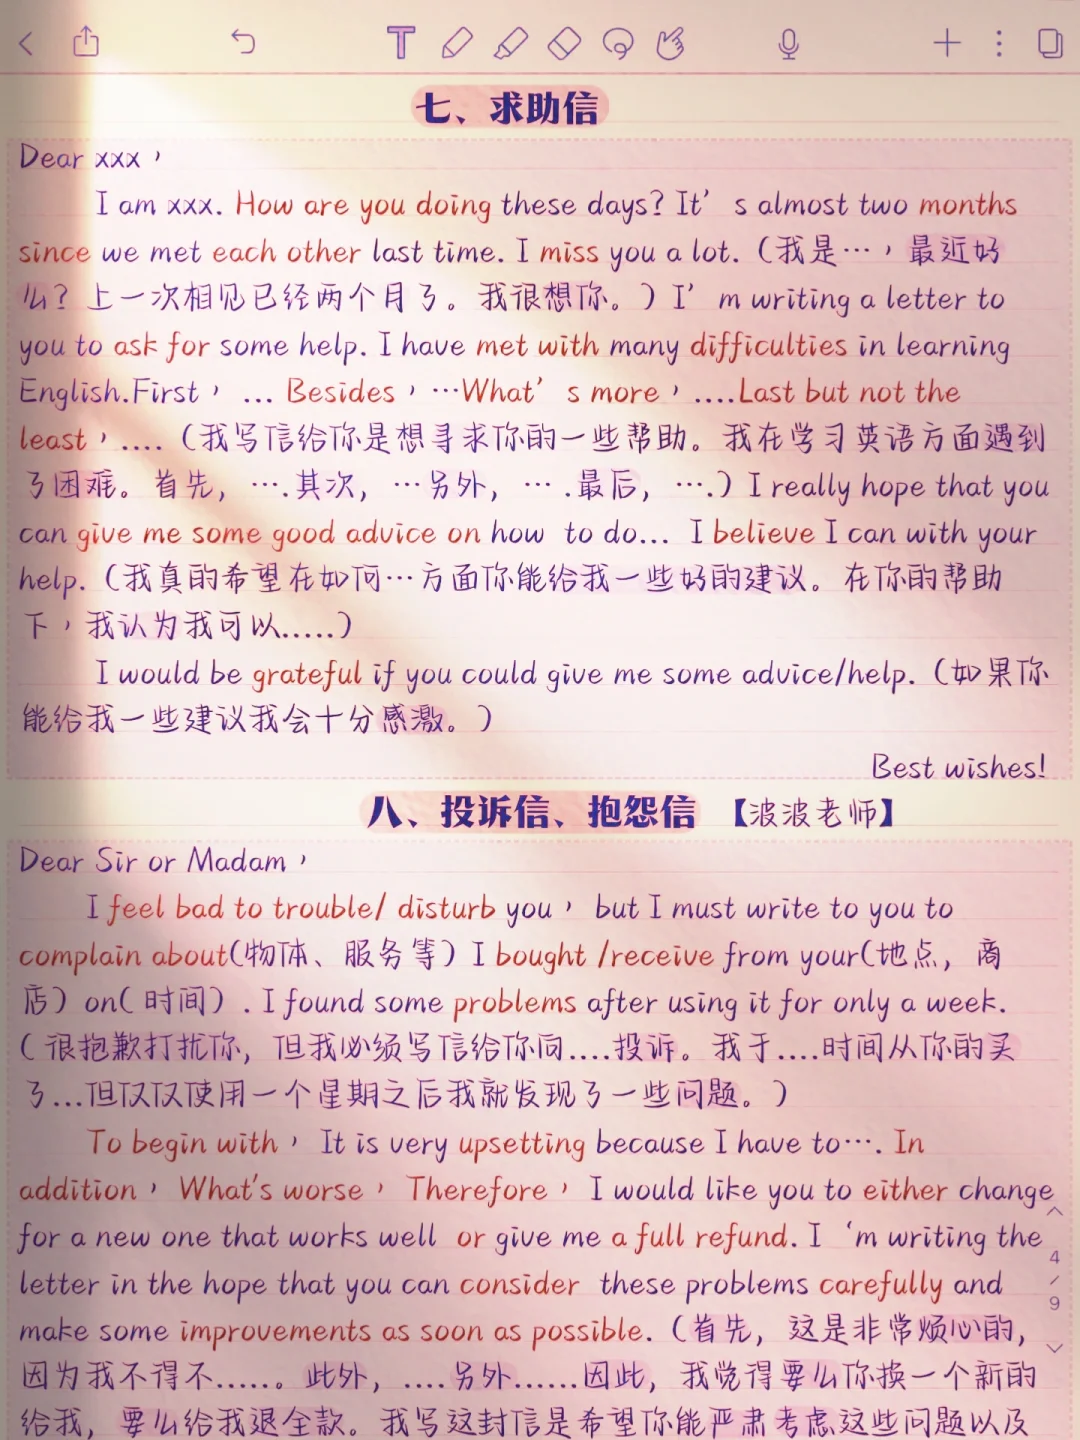 七、求助信
Dear xxx，
I am xxx. How are you doing these days? It's almost two months
since we met each other last time. I miss you a lot.（我是…，最近好
么？上一次相见已经两个月了。我很想你。）I'm writing a letter to
you to ask for some help. I have met with many difficulties in learning
English.First， ... Besides，…What's more，....Last but not the
least，....（我写信给你是想寻求你的一些帮助。我在学习英语方面遇到
了困难。首先，….其次，…另外，… .最后，….）I really hope that you
can give me some good advice on how to do... I believe I can with your
help.（我真的希望在如何…方面你能给我一些好的建议。在你的帮助
下，我认为我可以.....）
I would be grateful if you could give me some advice/help.（如果你
能给我一些建议我会十分感激。）
Best wishes!
八、投诉信、抱怨信 【波波老师】
Dear Sir or Madam，
I feel bad to trouble/ disturb you， but I must write to you to
complain about(物体、服务等）I bought /receive from your(地点，商
店）on( 时间）. I found some problems after using it for only a week.
（很抱歉打扰你，但我必须写信给你向....投诉。我于....时间从你的买
了...但仅仅使用一个星期之后我就发现了一些问题。）
To begin with， It is very upsetting because I have to…. In
addition， What's worse， Therefore， I would like you to either change
for a new one that works well or give me a full refund. I 'm writing the
letter in the hope that you can consider these problems carefully and
make some improvements as soon as possible.（首先，这是非常烦心的，
因为我不得不.....。此外，....另外......因此，我觉得要么你换一个新的
给我，要么给我退全款。我写这封信是希望你能严肃考虑这些问题以及
4
/
9